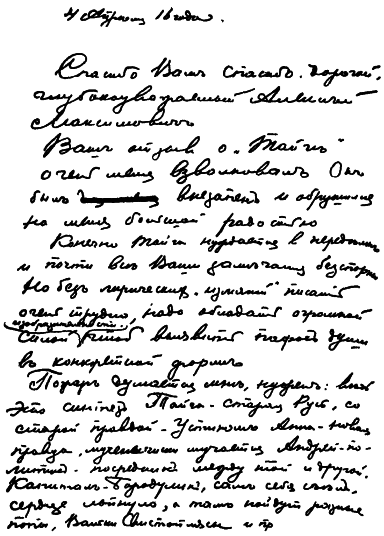 4 Апрѣля 16 года.
Спасибо Вамъ спасибо. дорогой,
глубокоуважаемый Алексѣй
Максимовичъ
Вашъ отзывъ о "Тайгѣ"
очень меня взволновалъ Онъ
былъ внезапенъ и обрушился
на меня большой радостью
Конечно Тайга нуждается в передѣлкѣ
и почти всѣ Ваши замѣчания безспорны
Но безъ лирических изліяній писать
очень трудно, надо обладать огромной
изобразительной
силой чтоб выявить пафосъ души
въ конкретной формѣ
Пафосъ думается мнѣ, нуженъ: вѣдь
это синтезъ Тайга - старая Русь, со
старой правдой - Устиньюшка Анна - новая
правда, мученически мучается Андрей - по-
литик - посредникъ между той и другой.
Капиталъ - Бородулинъ, самъ себя съѣлъ,
сердце лопнуло, а тамъ пойдутъ разные
попы, Ваньки Свистоплясы и пр